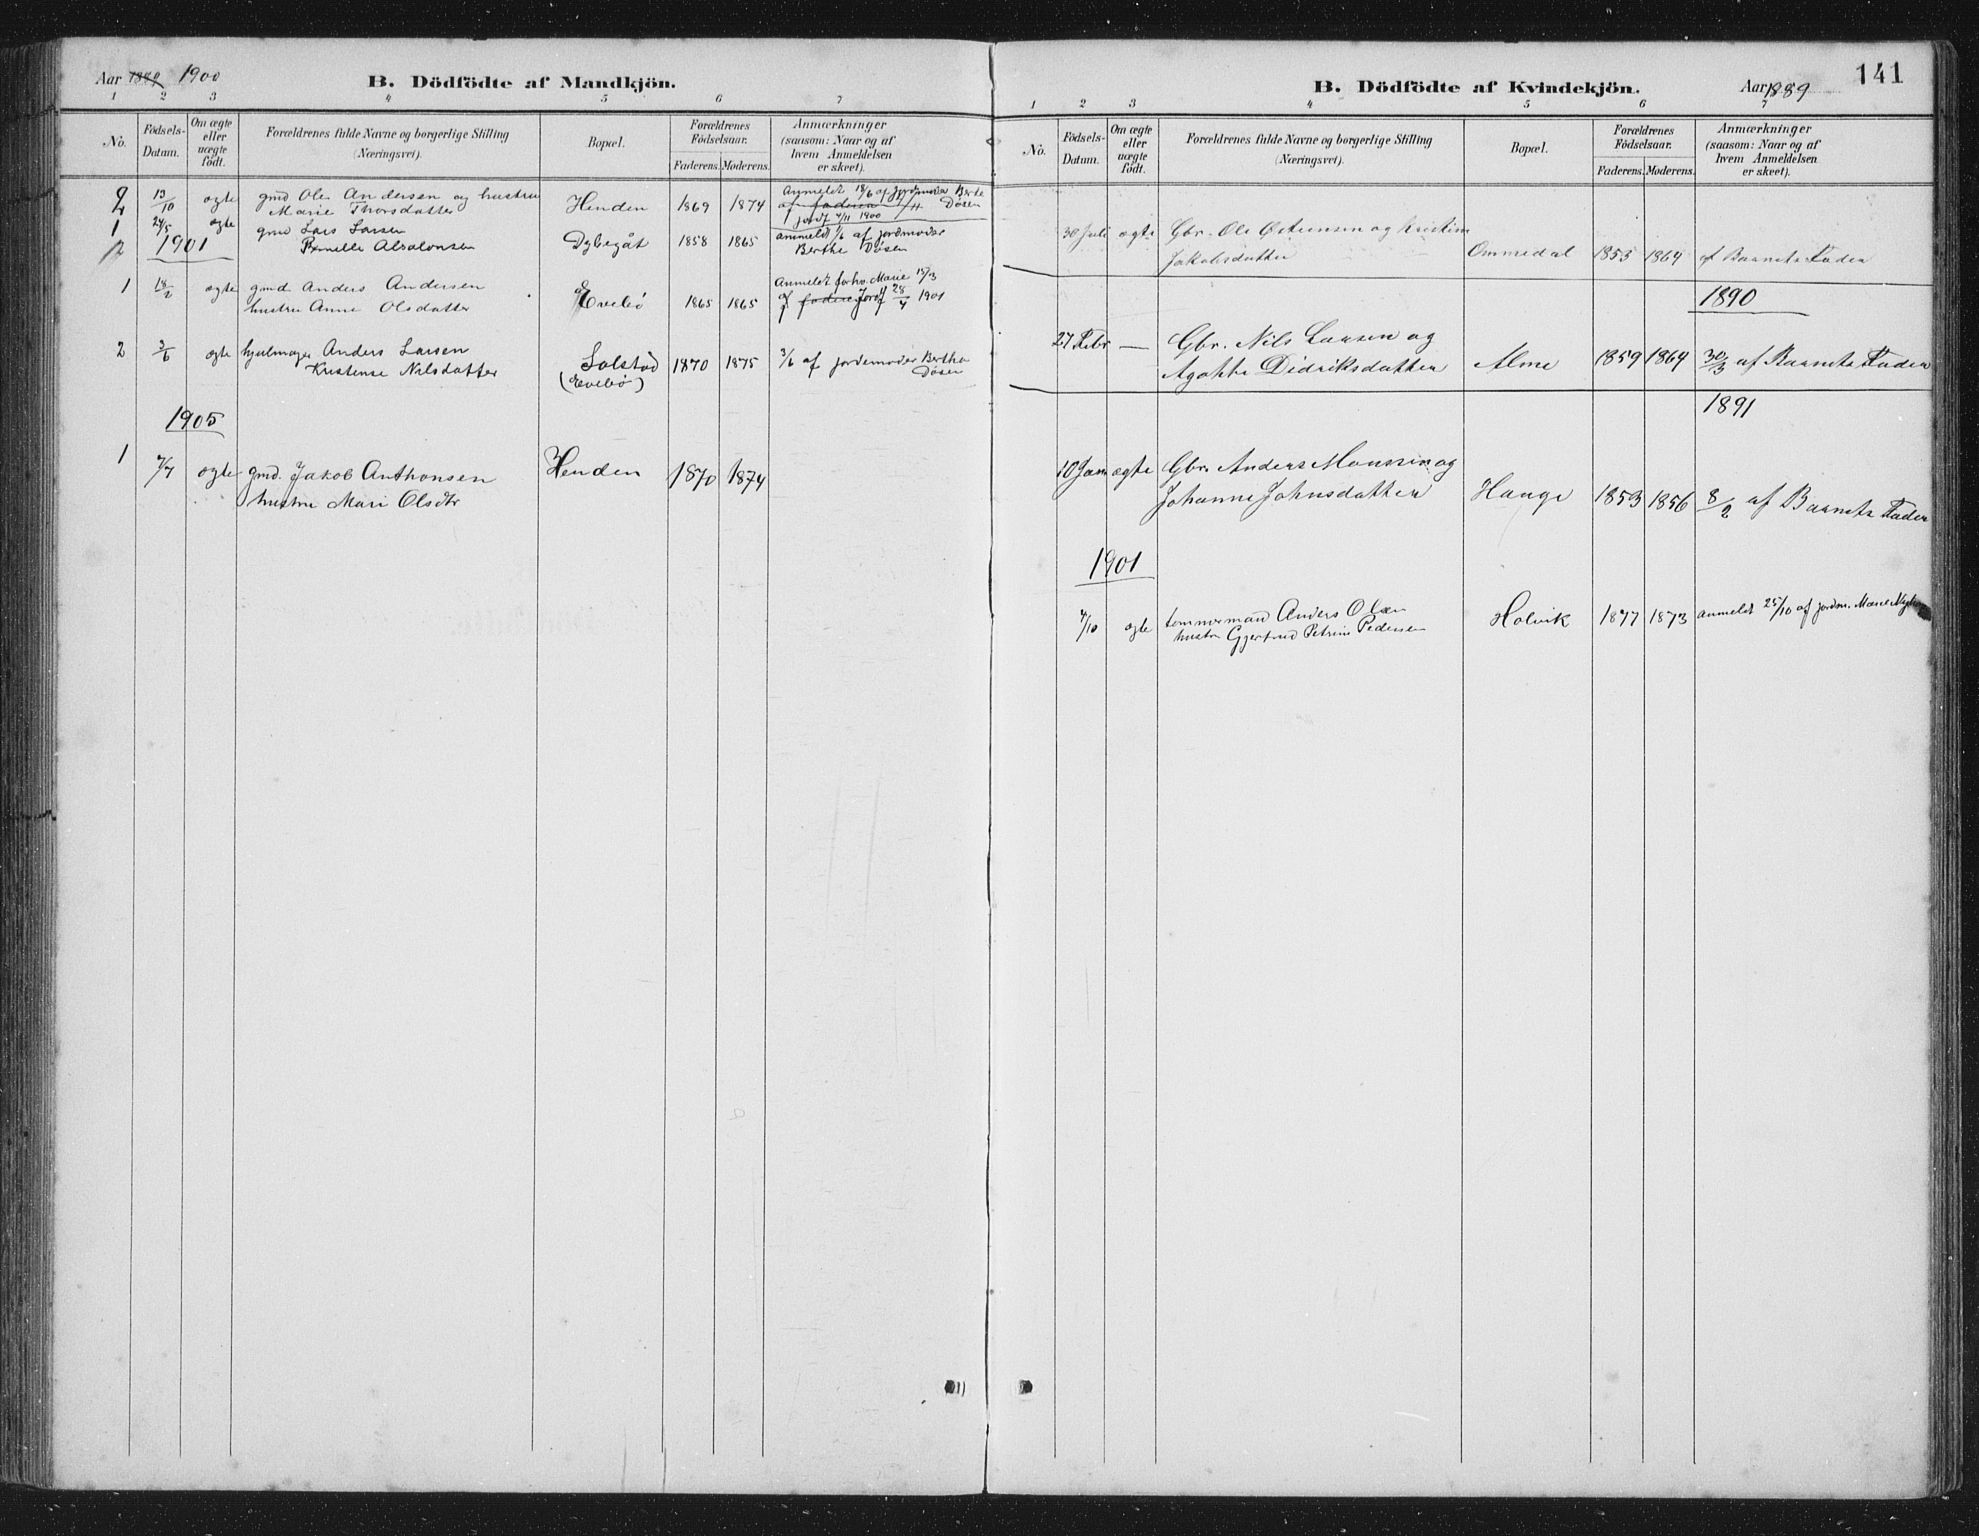 Aar 1889 1900
B. Dödfödte af Mandkjön.
1 2 3 4 5 6 7
No.
Födsels-Datum.
Om ægte eller uægte födt.
Forældrenes fulde Navne og borgerlige Stilling
(Næringsvei).
Bopæl.
Forældrenes Födselsaar.
Faderens. Moderens.
Anmærkninger
(saasom: Naar og af
hvem Anmeldelsen
er skeet).
2 13/10 ægte gmd Ole Andersen og hustru Henden 1869 1874 Anmeldt 18/6 af jordmoder Berte
Marie Thorsdatter af faderen Døsen
jordf 4/11 1900
1 24/5 ægte gmd Lars Larsen Dybegåt 1858 1865 anmeldt 1/6 af jordmoder
Pernille Absalonsen Berthe Døsen
1901
1 18/2 ægte gmd Anders Andersen Evebø 1865 1865 Anmeldt forhv. Marie 15/3
hustru Anne Olsdatter af faderen Jordf 28/4 1901
2 3/6 ægte hjulmager Anders Larsen Solstad 1870 1875 3/6 af jordemoder Bertha
Kristense Nilsdatter (Evebø) Døsen
1905
1 7/7 ægte gmd. Jakob Anthonsen Henden 1870 1874
hustru Mari Olsdtr
141
B. Dödfödte af Kvindekjön.
Aar 1889
1 2 3 4 5 6 7
No.
Födsels-Datum.
Om ægte eller uægte födt.
Forældrenes fulde Navne og borgerlige Stilling
(Næringsvei).
Bopæl.
Forældrenes Födselsaar.
Faderens. Moderens.
Anmærkninger
(saasom: Naar og af
hvem Anmeldelsen
er skeet).
30 Juli ægte Gbr. Ole Østensen og Kristine
Jakobsdatter Ommedal 1855 1864 af Barnets Fader
1890
27 Febr — Gbr. Nils Larsen og
Agathe Didriksdatter Alme 1859 1864 30/3 af Barnets Fader
1891
10 Jan ægte Gbr. Anders Monssen og
Johanne Johnsdatter Hauge 1853 1856 8/2 af Barnets Fader
1901
4/10 ægte tømmermand Anders Olsen Holvik 1877 1873 anmeldt 25/10 af jordm. Marie
hustr Gjertrud Petrine Pedersen